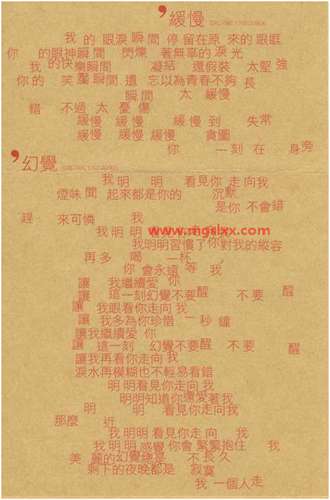 緩慢
我的眼淚瞬間停留在原來的眼眶
你的眼神瞬間閃爍著無辜的淚光
我的快樂瞬間凝結還假裝太堅強
你的笑靨瞬間還忘以為青春不夠長
瞬間太緩慢
錯不過太憂傷
緩慢緩慢緩慢到失常
緩慢緩慢緩慢貪圖
你一刻在身旁
幻覺
我明明明看見你走向我
燈味聞起來都是你的沉默
是你不會錯
趕來可憐我
我明明
www.mgslxx.com
我明明習慣了你對我的縱容
再多喝一杯,
你會永遠等我
讓我繼續愛你
讓這一刻幻覺不要醒不要醒
讓我眼看你走向我
讓我多為你珍惜一秒鐘
讓我繼續愛你
讓這一刻幻覺不要醒不要醒
讓我再看你走向我
淚水再模糊也不輕易看錯
明明看見你走向我
明明知道你還愛著我
明明看見你走向我
那麼近
我明明看見你走向我
我明明感覺你會緊緊抱住我
美麗的幻覺總是不長久
剩下的夜晚都是寂寞
我一個人走